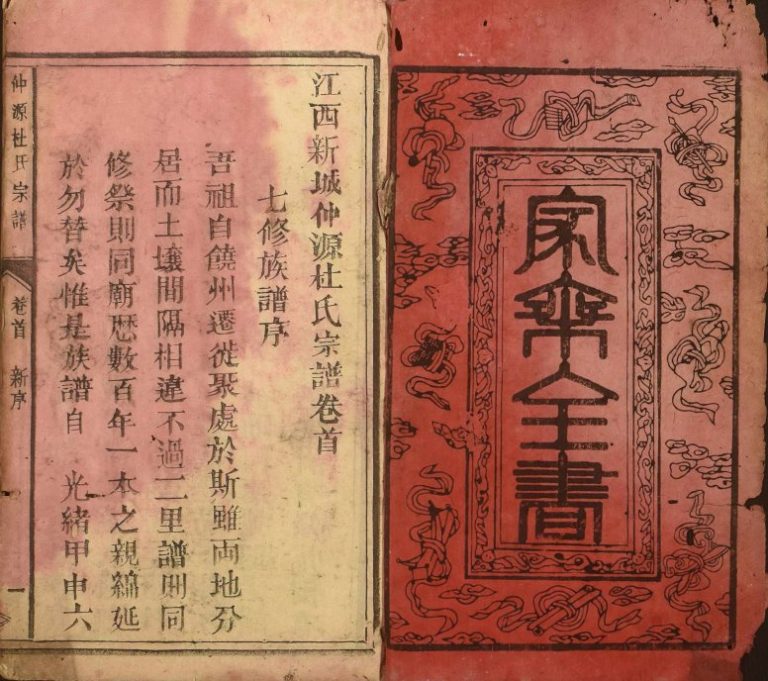 家乘全書
江西新城仲源杜氏宗譜卷首
七修族譜序
吾祖自饒州遷徙聚處於斯雖両地分
居而土壤間隔相違不過二里譜則同
修祭則同廟歴數百年一本之親綿延
於勿替矣惟是族譜自 光緒甲申六
仲源杜氏宗譜 卷首 新序 一